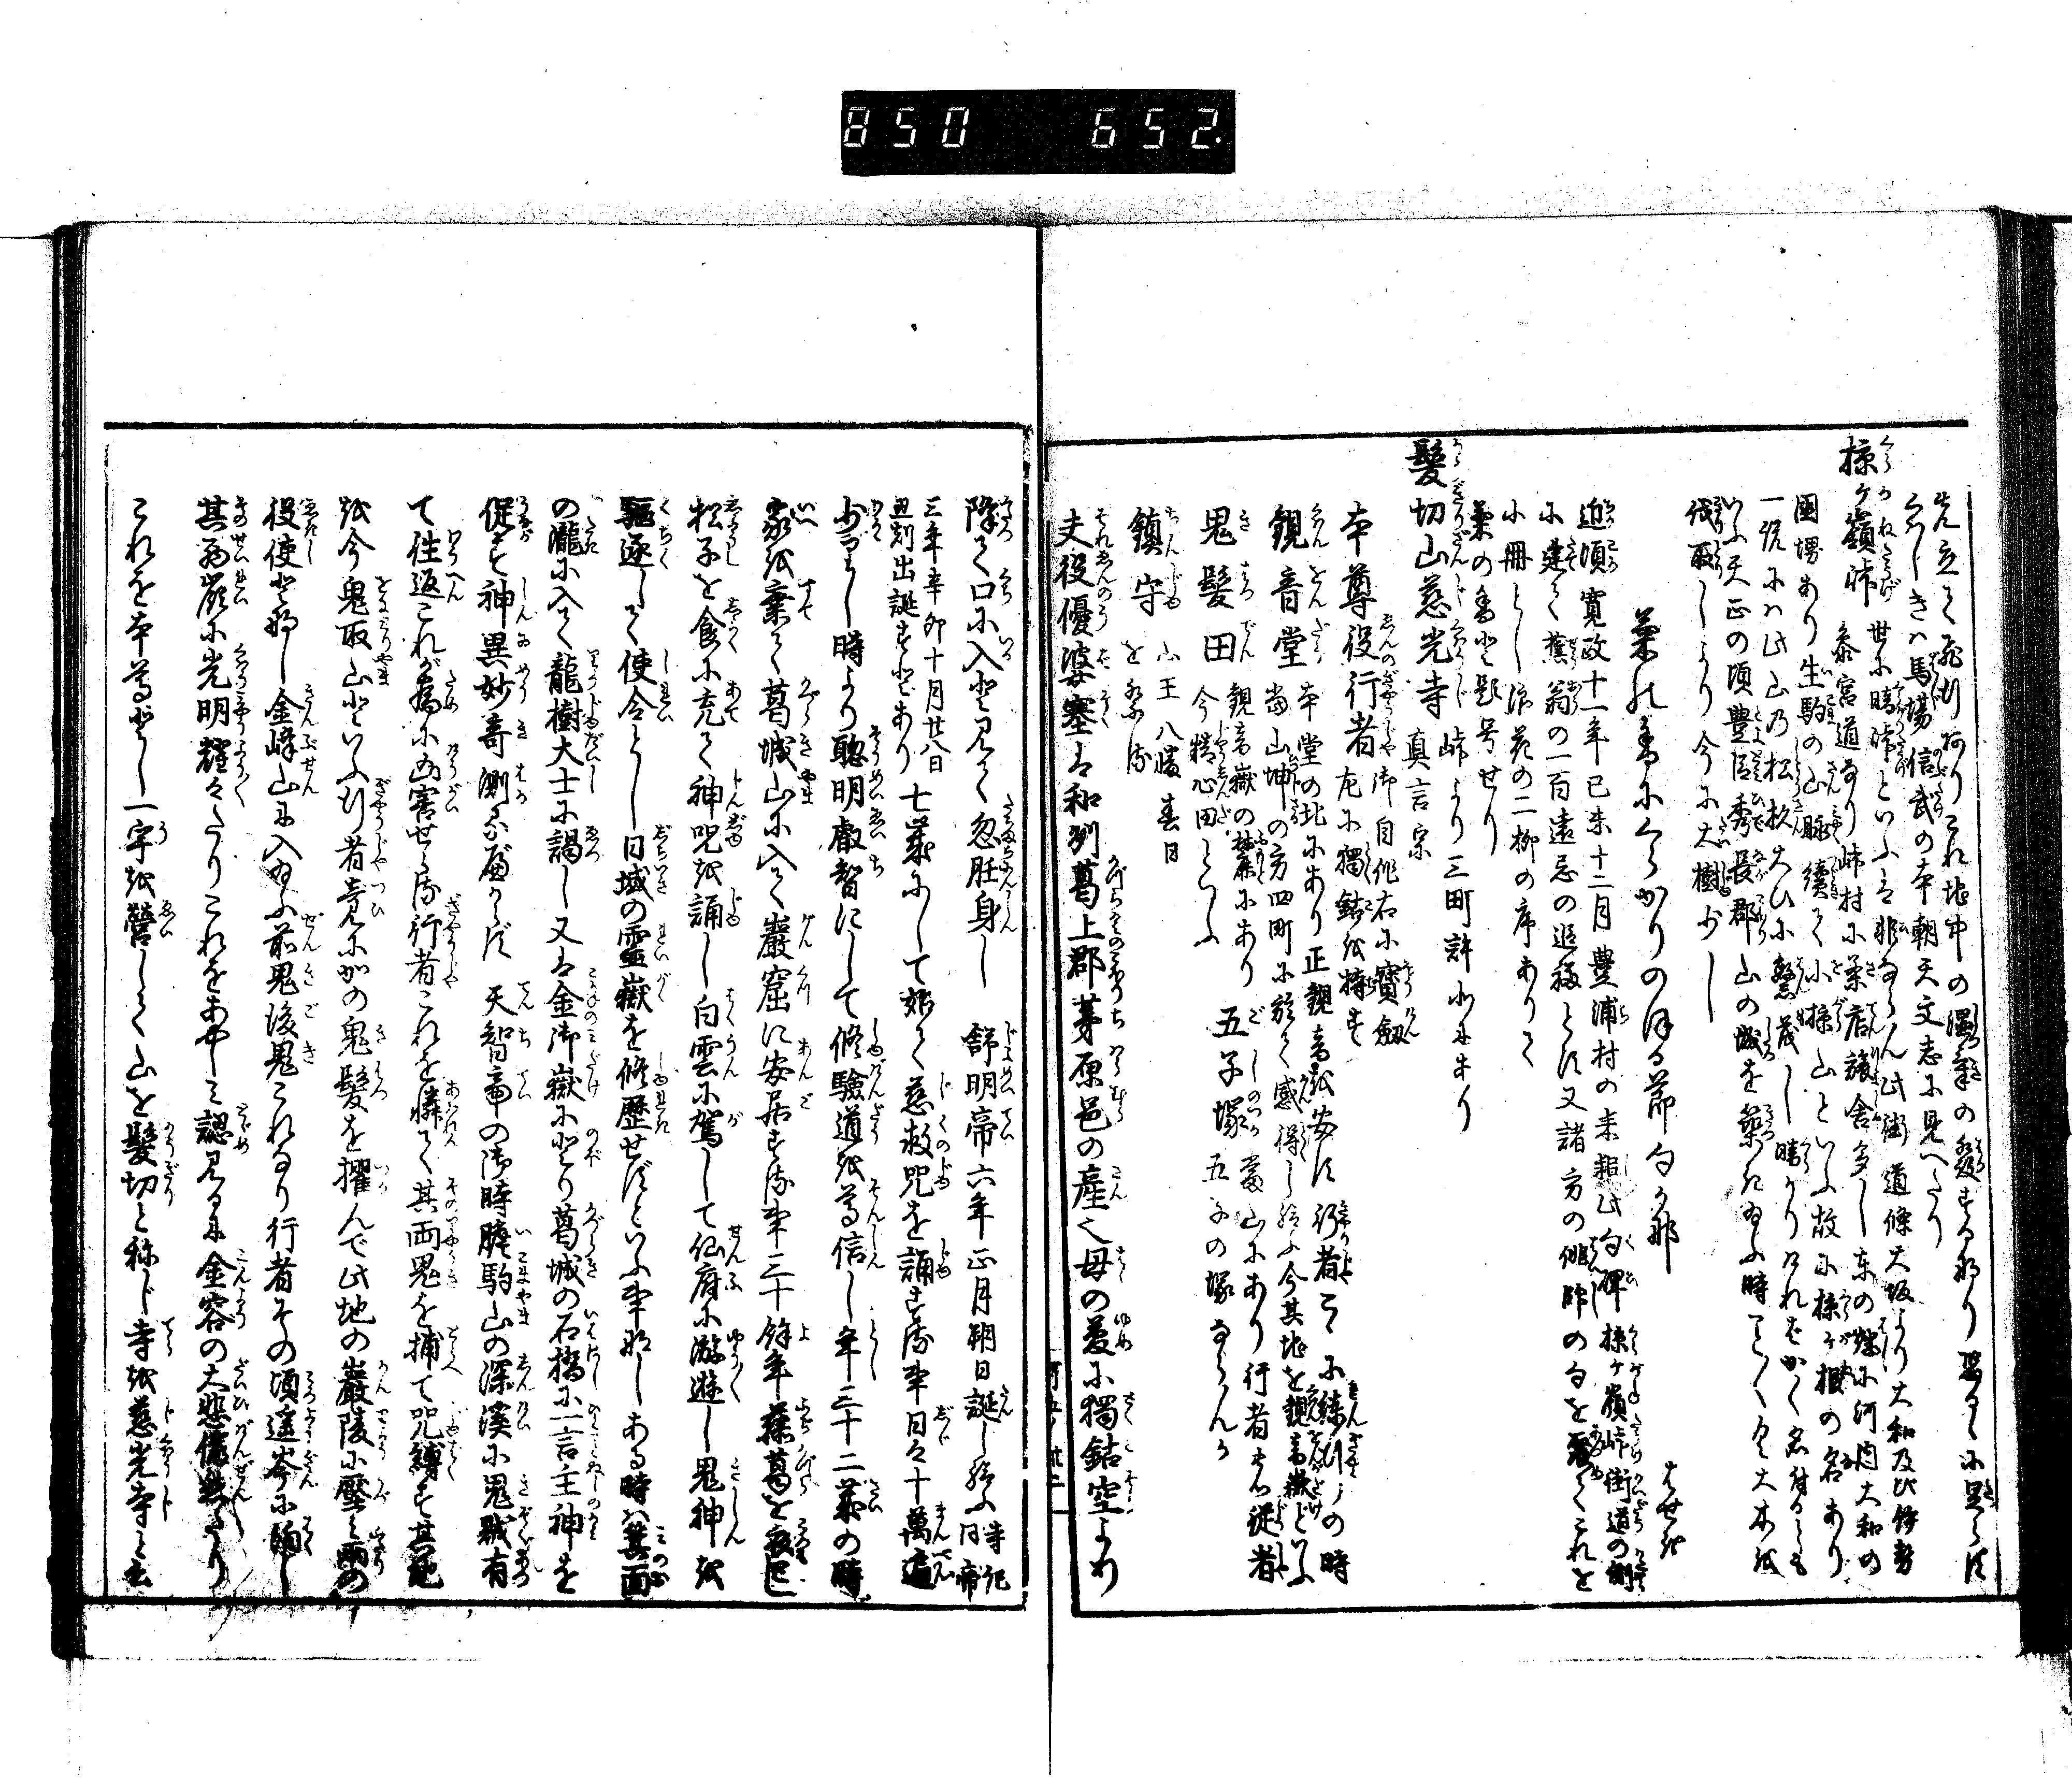 850 652.
先立て飛行ありこれ地中の濕氣の發するなり
くハしきハ馬場信武の本朝天文志に見へたり
椋ケ嶺峠 世に暗峠といふは非ならん此街道條大坂より大和及び伊勢
参宮道なり峠村に茶店旅舎多し東の麓に河内大和の
國堺あり生駒の山脈續て小椋山といふ故に椋ケ根の名あり
一説にハ此山の松杉大ひに繁茂し暗かりければかく名付るとも
いふ天正の頃豊臣秀長郡山の城を築れ給ふ時ことごとく大木を
伐取しより今に大樹少し
菊の香にくらがりのぼる節句かな はせを
近頃寛政十一年己未十二月豊浦村の来耜此句碑椋ケ嶺峠街道の側
に建て蕉翁の一百遠忌の追福とす又諸方の俳師の句を聚てこれを
小冊とし浪花の二柳の序ありて
菊の香と題号せり
髪切山慈光寺 峠より三町許北にあり
真言宗
本尊役行者 御自作右に寶劔
左に獨鈷を持す
観音堂 本堂の北にあり正観音を安ず行者こゝに練行の時
當山坤の方四町に於て感得し給ふ今其地を観音嶽といふ
鬼髪田 観音嶽の麓にあり
今精心田といふ
五子塚 當山にあり行者の従者
五子の塚ならんか
鎮守 山王 八幡 春日
を祭る
夫役優婆塞は和州葛上郡茅原邑の産也母の夢に獨鈷空より
降て口に入と見て忽妊身し 舒明帝六年正月朔日誕し給ふ 寺記同帝
三年辛卯十月廿八日
丑刻出誕すとあり 七歳にして始て慈救呪を誦する事日々十萬遍
少かりし時より聰明叡智にして修驗道を尊信し年三十二歳の時
家を棄て葛城山に入て巖窟に安居する事三十餘年藤葛を衣とし
松子を食に充て神呪を誦し白雲に駕して仙府に游遊し鬼神を
驅逐して使令とし日域の霊嶽を修歴せずといふ事なしある時ハ箕面
の瀧に入て龍樹大士に謁し又は金御嶽に登り葛城の石橋に一言主神を
促す神異妙奇測るべからず 天智帝の御時膽駒山の深溪に鬼賊有
て往返これが為に凶害せらる行者これを憐て其両鬼を捕て呪縛す其地
を今鬼取山といふ行者竟にかの鬼髪を擢んで此地の巖陵に壓て両の
役使となし金峰山に入給ふ前鬼後鬼これなり行者その頃遥峯に向し
其西巌に光明耀々たりこれをあやしミ認見るに金容の大悲儼然たり
これを本尊とし一宇を營して山を髪切と称じ寺を慈光寺と云